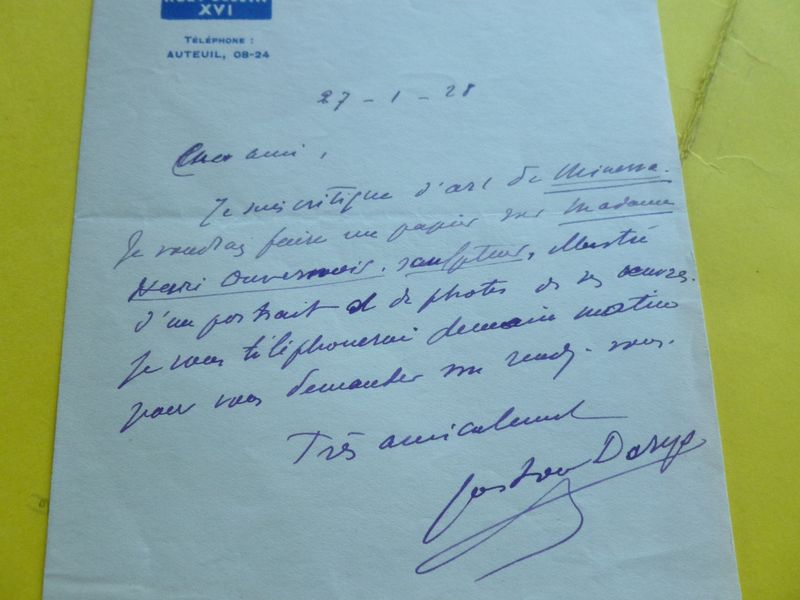 XVI
TÉLÉPHONE :
AUTEUIL, 08-24
27 - 1 - 28
Cher ami,
Je suis critique d'art de Minerva.
Je voudrais faire un papier sur Madame
Henri Duvernois, sculpteur, illustré
d'un portrait et de photos de ses œuvres.
Je vous téléphonerai demain matin
pour vous demander un rendez-vous.
Très amicalement